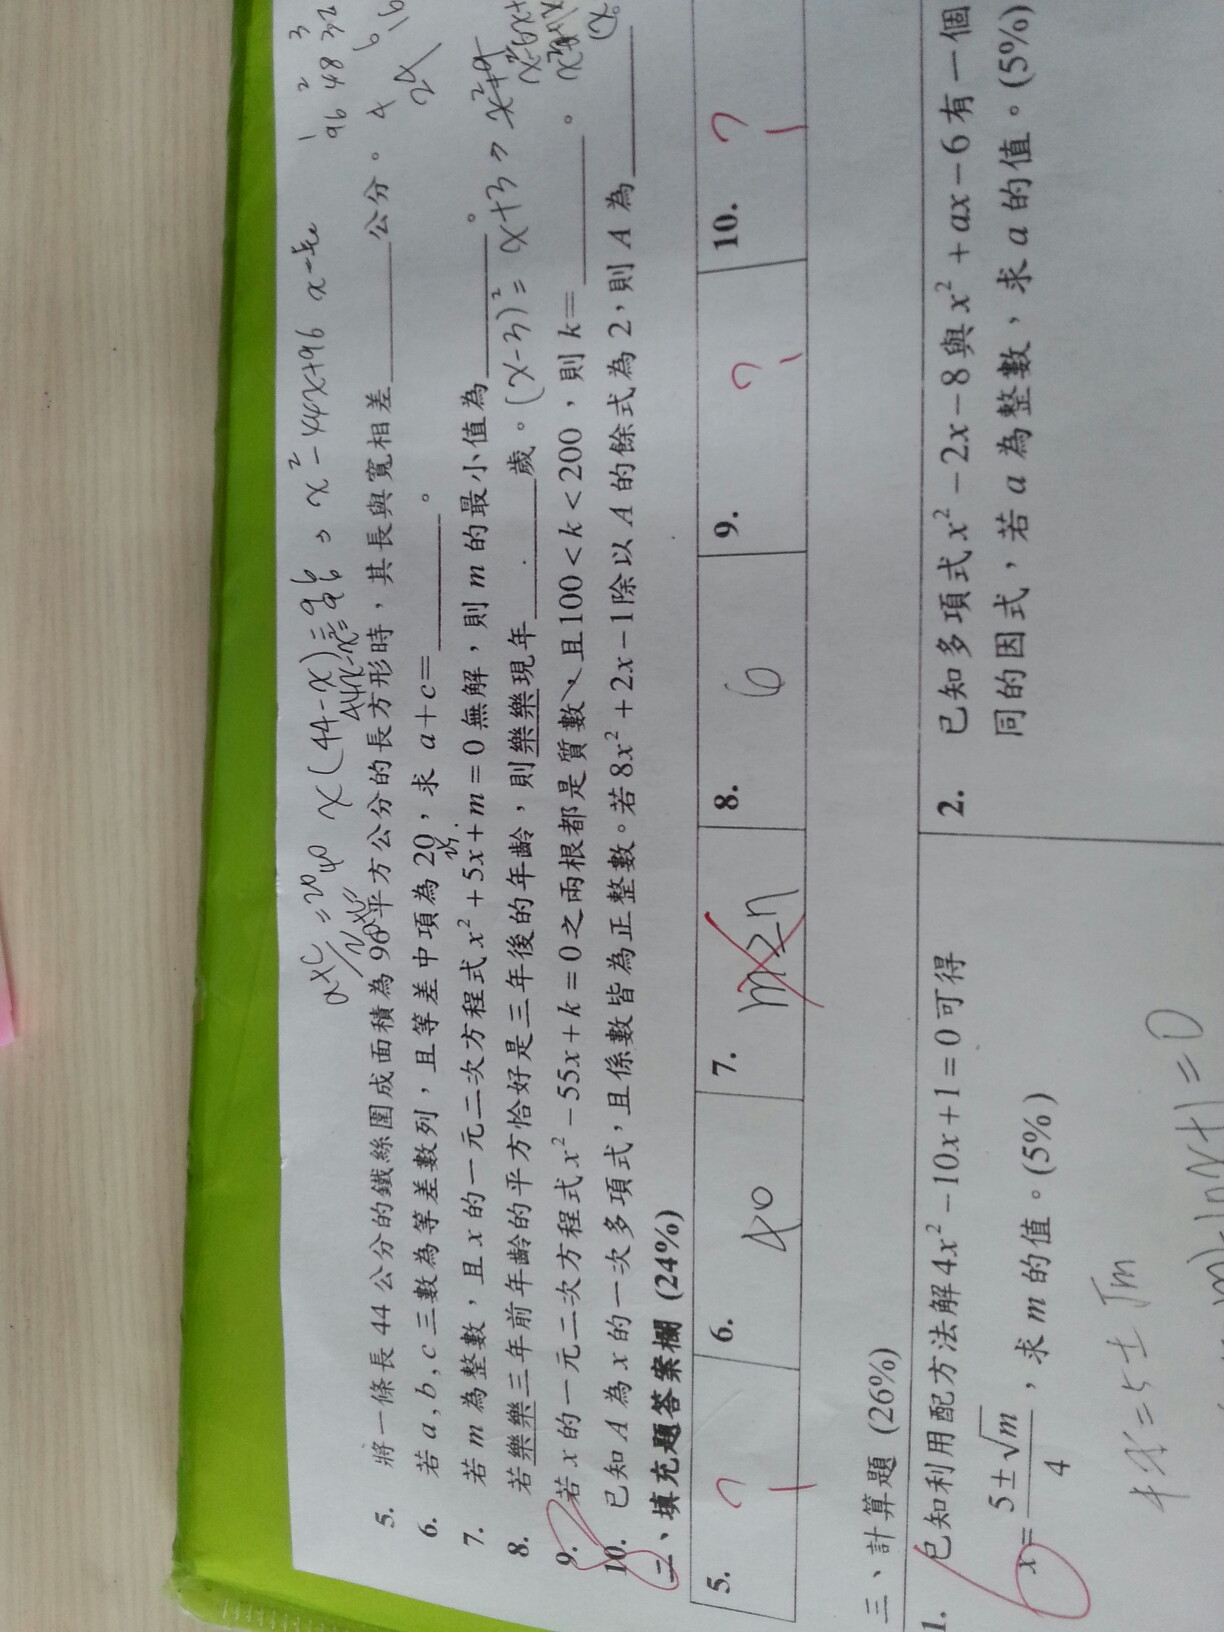 a+c
x(44-x)=96 , x²-44x+96
44x-x²=96
5. 將一條長 44 公分的鐵絲圍成面積為 96 平方公分的長方形時，其長與寬相差______公分。
6. 若 a , b , c 三數為等差數列，且等差中項為 20，求 a+c=______。
7. 若 m 為整數，且 x 的一元二次方程式 x²+5x+m=0 無解，則 m 的最小值為______。
8. 若樂樂三年前年齡的平方恰好是三年後的年齡，則樂樂現年______歲。(x-3)²= x+3
9. 若 x 的一元二次方程式 x²-55x+k=0 之兩根都是質數、且 100<k<200，則 k=______。
10. 已知 A 為 x 的一次多項式，且係數皆為正整數。若 8x²+2x-1 除以 A 的餘式為 2，則 A 為______
二、填充題答案欄 (24%)
5. ? 6. 40 7. m≥n 8. 6 9. ? 10. ?
三、計算題 (26%)
1. 已知利用配方法解 4x²-10x+1=0 可得
x=(5±√m)/4，求 m 的值。(5%)
2. 已知多項式 x²-2x-8 與 x²+ax-6 有一個
同的因式，若 a 為整數，求 a 的值。(5%)
4x=5±√m